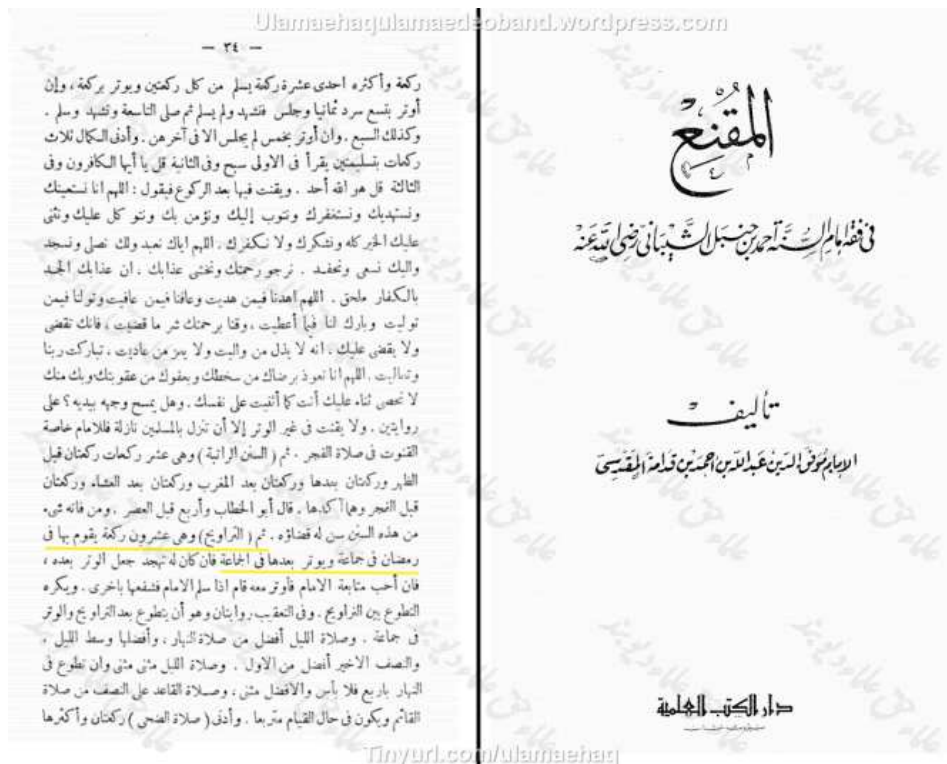 Ulamaehaqulamaedeoband.wordpress.com
— ٣٤ —
ركعة وأكثره احدى عشرة ركعة يسلم من كل ركعتين ويوتر بركعة ، وإن
أوتر بتسع سرد ثمانيا وجلس فتشهد ولم يسلم ثم صلى التاسعة وتشهد وسلم .
وكذلك السبع . وان أوتر بخمس لم يجلس الا فى آخرهن . وأدنى الكمال ثلاث
ركعات بتسليمتين يقرأ فى الاولى سبح وفى الثانية قل يا أيها الكافرون وفى
الثالثة قل هو الله أحد . ويقنت فيها بعد الركوع فيقول : اللهم انا نستعينك
ونستهديك ونستغفرك ونتوب إليك ونؤمن بك ونتو كل عليك ونثنى
عليك الخير كله ونشكرك ولا نكفرك . اللهم اياك نعبد ولك نصلى ونسجد
واليك نسعى ونحفد . نرجو رحمتك ونخشى عذابك . ان عذابك الجد
بالكفار ملحق . اللهم اهدنا فيمن هديت وعافنا فيمن عافيت وتولنا فيمن
توليت وبارك لنا فيما أعطيت ، وقنا برحمتك شر ما قضيت ، فانك تقضى
ولا يقضى عليك . انه لا يذل من واليت ولا يعز من عاديت ، تباركت ربنا
وتعاليت . اللهم انا نعوذ برضاك من سخطك وبعفوك من عقوبتك وبك منك
لا نحصى ثناء عليك أنت كما أثنيت على نفسك . وهل يمسح وجهه بيديه ؟ على
روايتين . ولا يقنت فى غير الوتر إلا أن تنزل بالمسلمين نازلة فللامام خاصة
القنوت فى صلاة الفجر . ثم ( السنن الراتبة ) وهى عشر ركعات ركعتان قبل
الظهر وركعتان بعدها وركعتان بعد المغرب وركعتان بعد العشاء وركعتان
قبل الفجر وهما آكدها . قال أبو الخطاب وأربع قبل العصر . ومن فاته شىء
من هذه السنن سن له قضاؤه . ثم ( التراويح ) وهى عشرون ركعة يقوم بها فى
رمضان فى جماعة ويوتر بعدها فى الجماعة فان كان له تهجد جعل الوتر بعده ،
فان أحب متابعة الامام فأوتر معه قام اذا سلم الامام فشفعها باخرى . ويكره
التطوع بين التراويح . وفى التعقيب روايتان وهو أن يتطوع بعد التراويح والوتر
فى جماعة . وصلاة الليل أفضل من صلاة النهار ، وأفضلها وسط الليل .
والنصف الاخير أفضل من الاول . وصلاة الليل مثنى مثنى وان تطوع فى
النهار باربع فلا بأس والافضل مثنى ، وصلاة القاعد على النصف من صلاة
القائم ويكون فى حال القيام متربعا . وأدنى ( صلاة الضحى ) ركعتان وأكثرها
المقنع
فى فقه إمام السنة أحمد بن حنبل الشيبانى رضى الله عنه
تأليف
الإمام موفق الدين عبد الله بن أحمد بن قدامة المقدسى
دار الكتب العلمية
Tinyurl.com/ulamaehaq